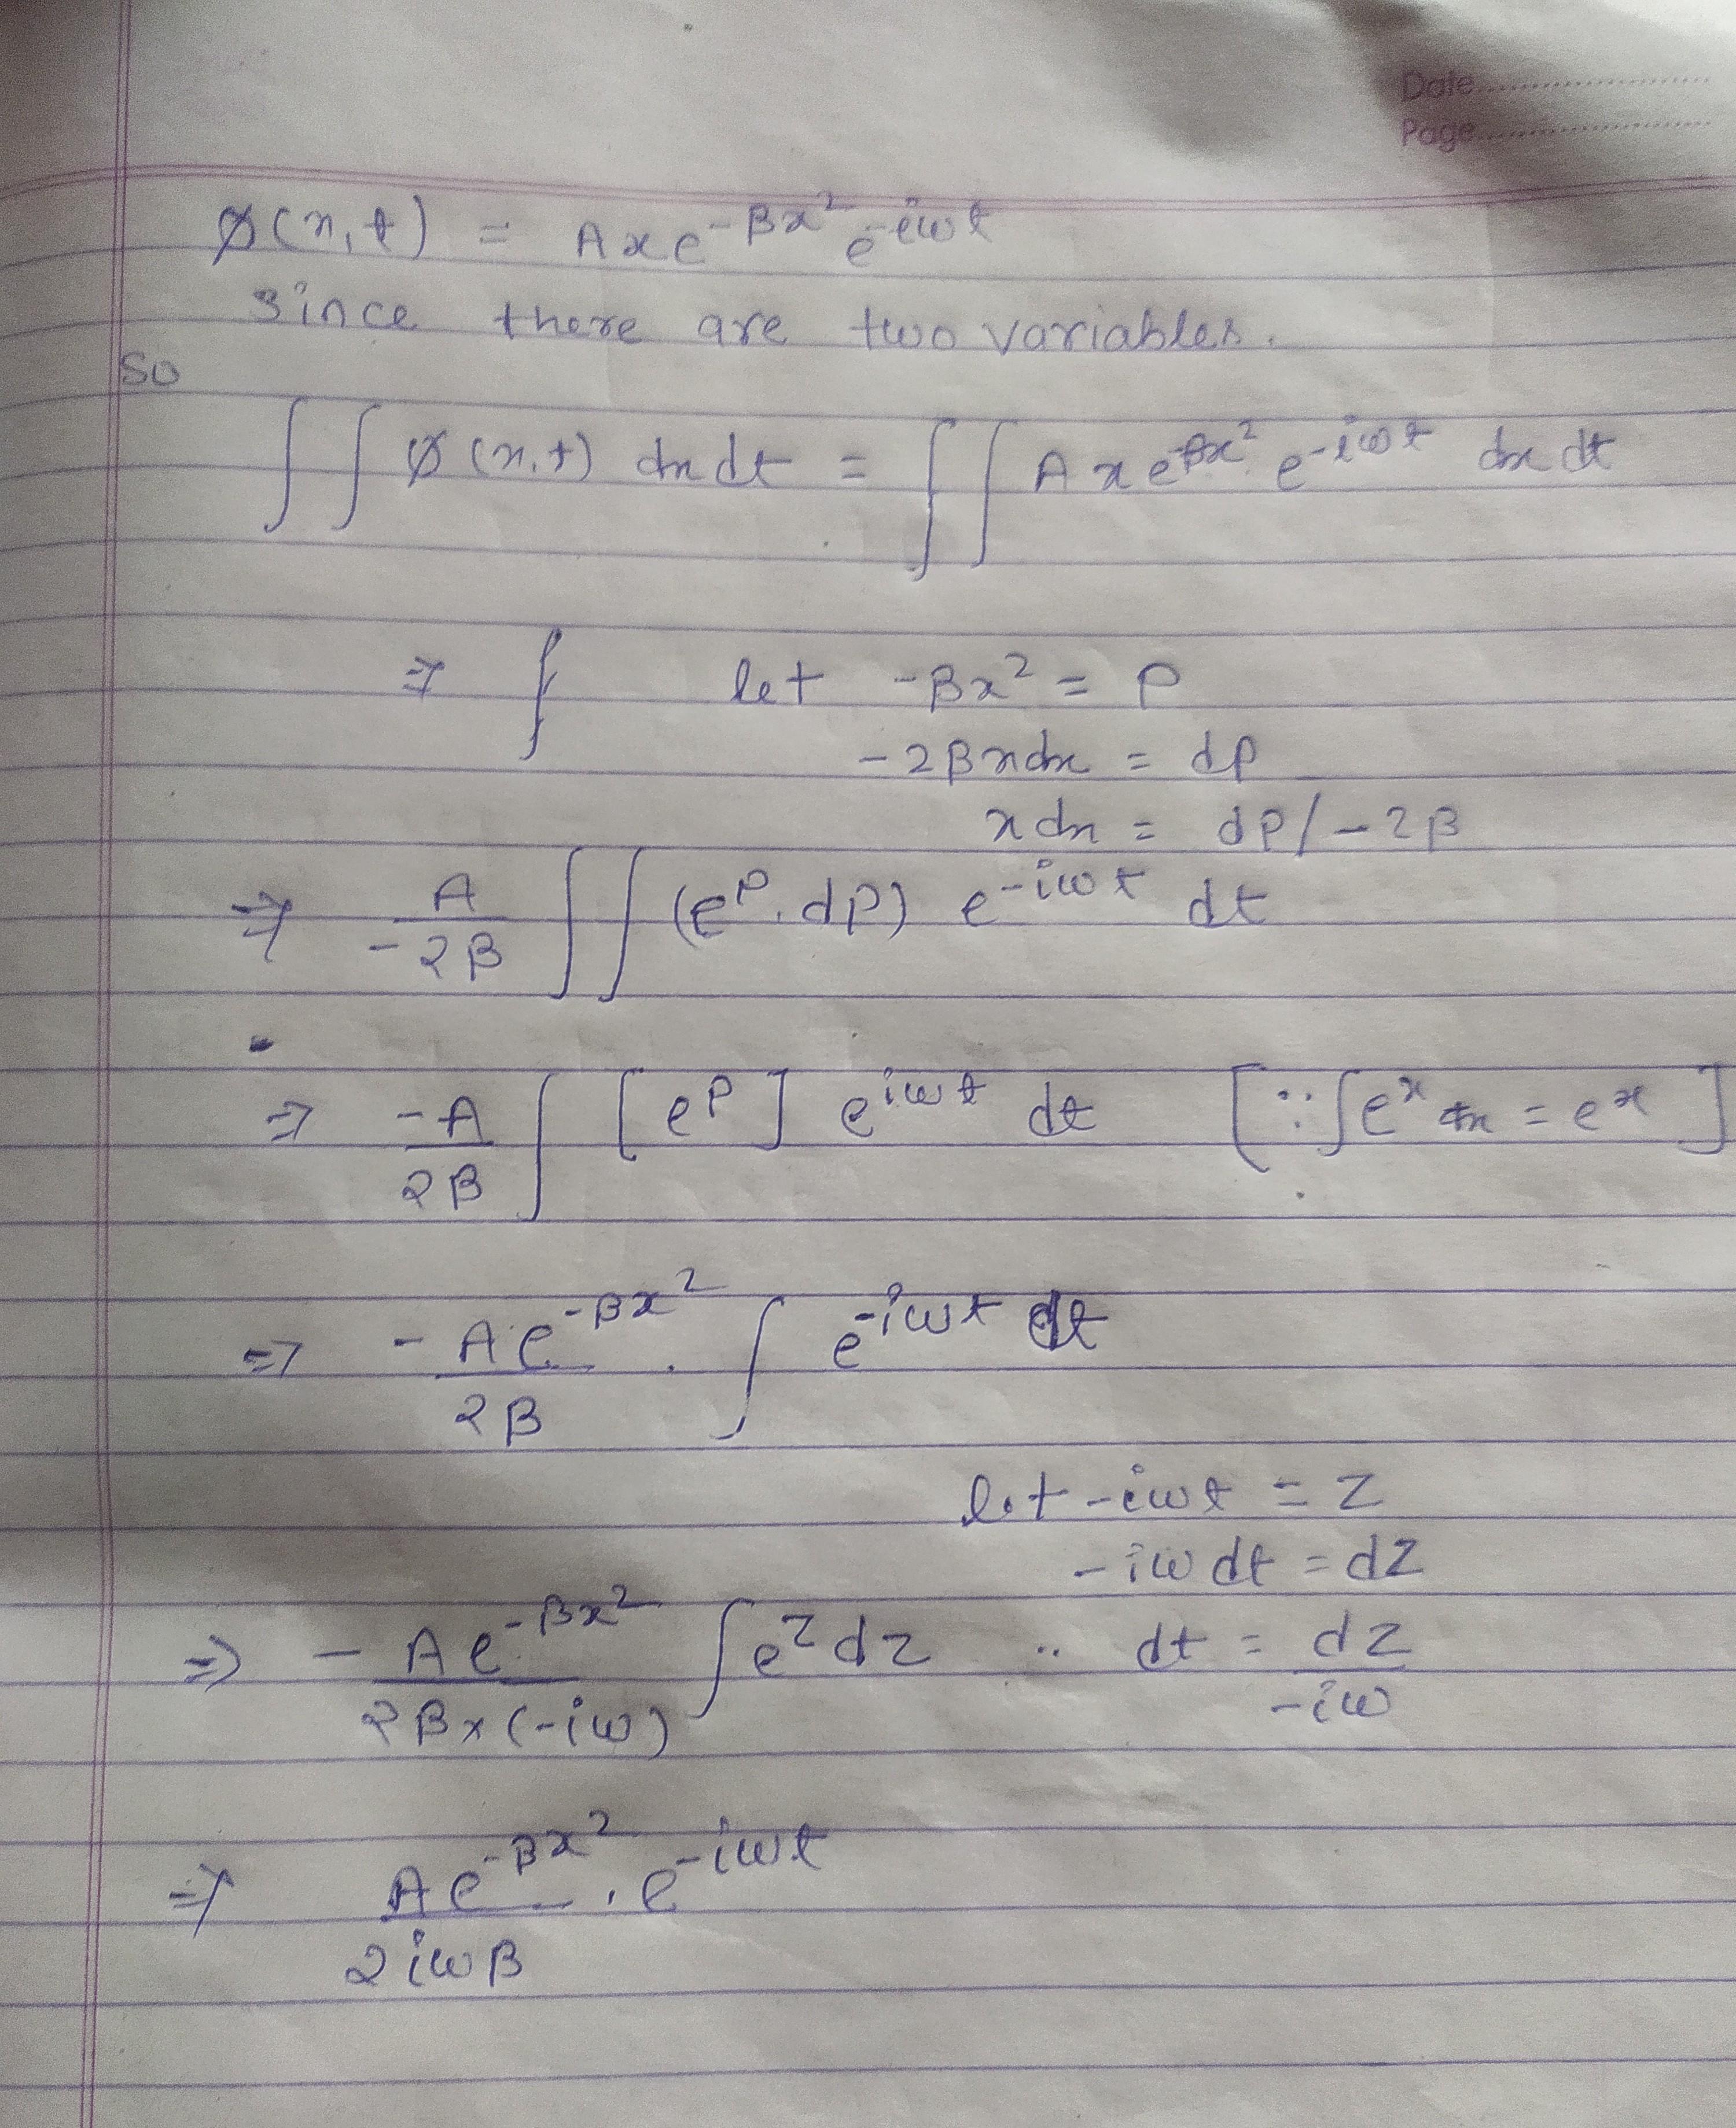 Date
Page
ϕ(x,t) = Axe^-βx² e^-iωt
since there are two variables.
so
∫∫ ϕ(x,t) dx dt = ∫∫ A x e^-βx² e^-iωt dx dt
⇒ ∫ let -βx² = P
-2βxdx = dP
xdx = dP/-2β
⇒ A/-2β ∫∫ (e^P. dP) e^-iωt dt
⇒ -A/2β ∫ [e^P] e^iωt dt [∵∫e^x dx = e^x]
⇒ -Ae^-βx²/2β . ∫ e^-iωt dt
let -iωt = Z
-iω dt = dZ
⇒ -Ae^-βx²/2β×(-iω) ∫e^Z dZ .. dt = dZ/-iω
⇒ Ae^-βx²/2iωβ . e^-iωt